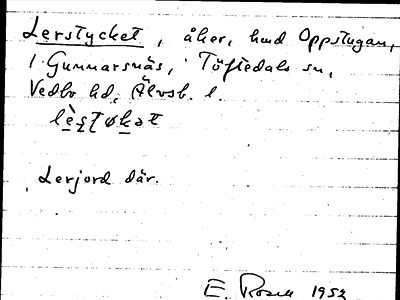 Lerstycket, åker, hmd Oppstugan,
1 Gunnarsnäs, Töftedals sn,
Vedbo hd, Älvsb. l.
Lerjord där.
E. Rosell 1952